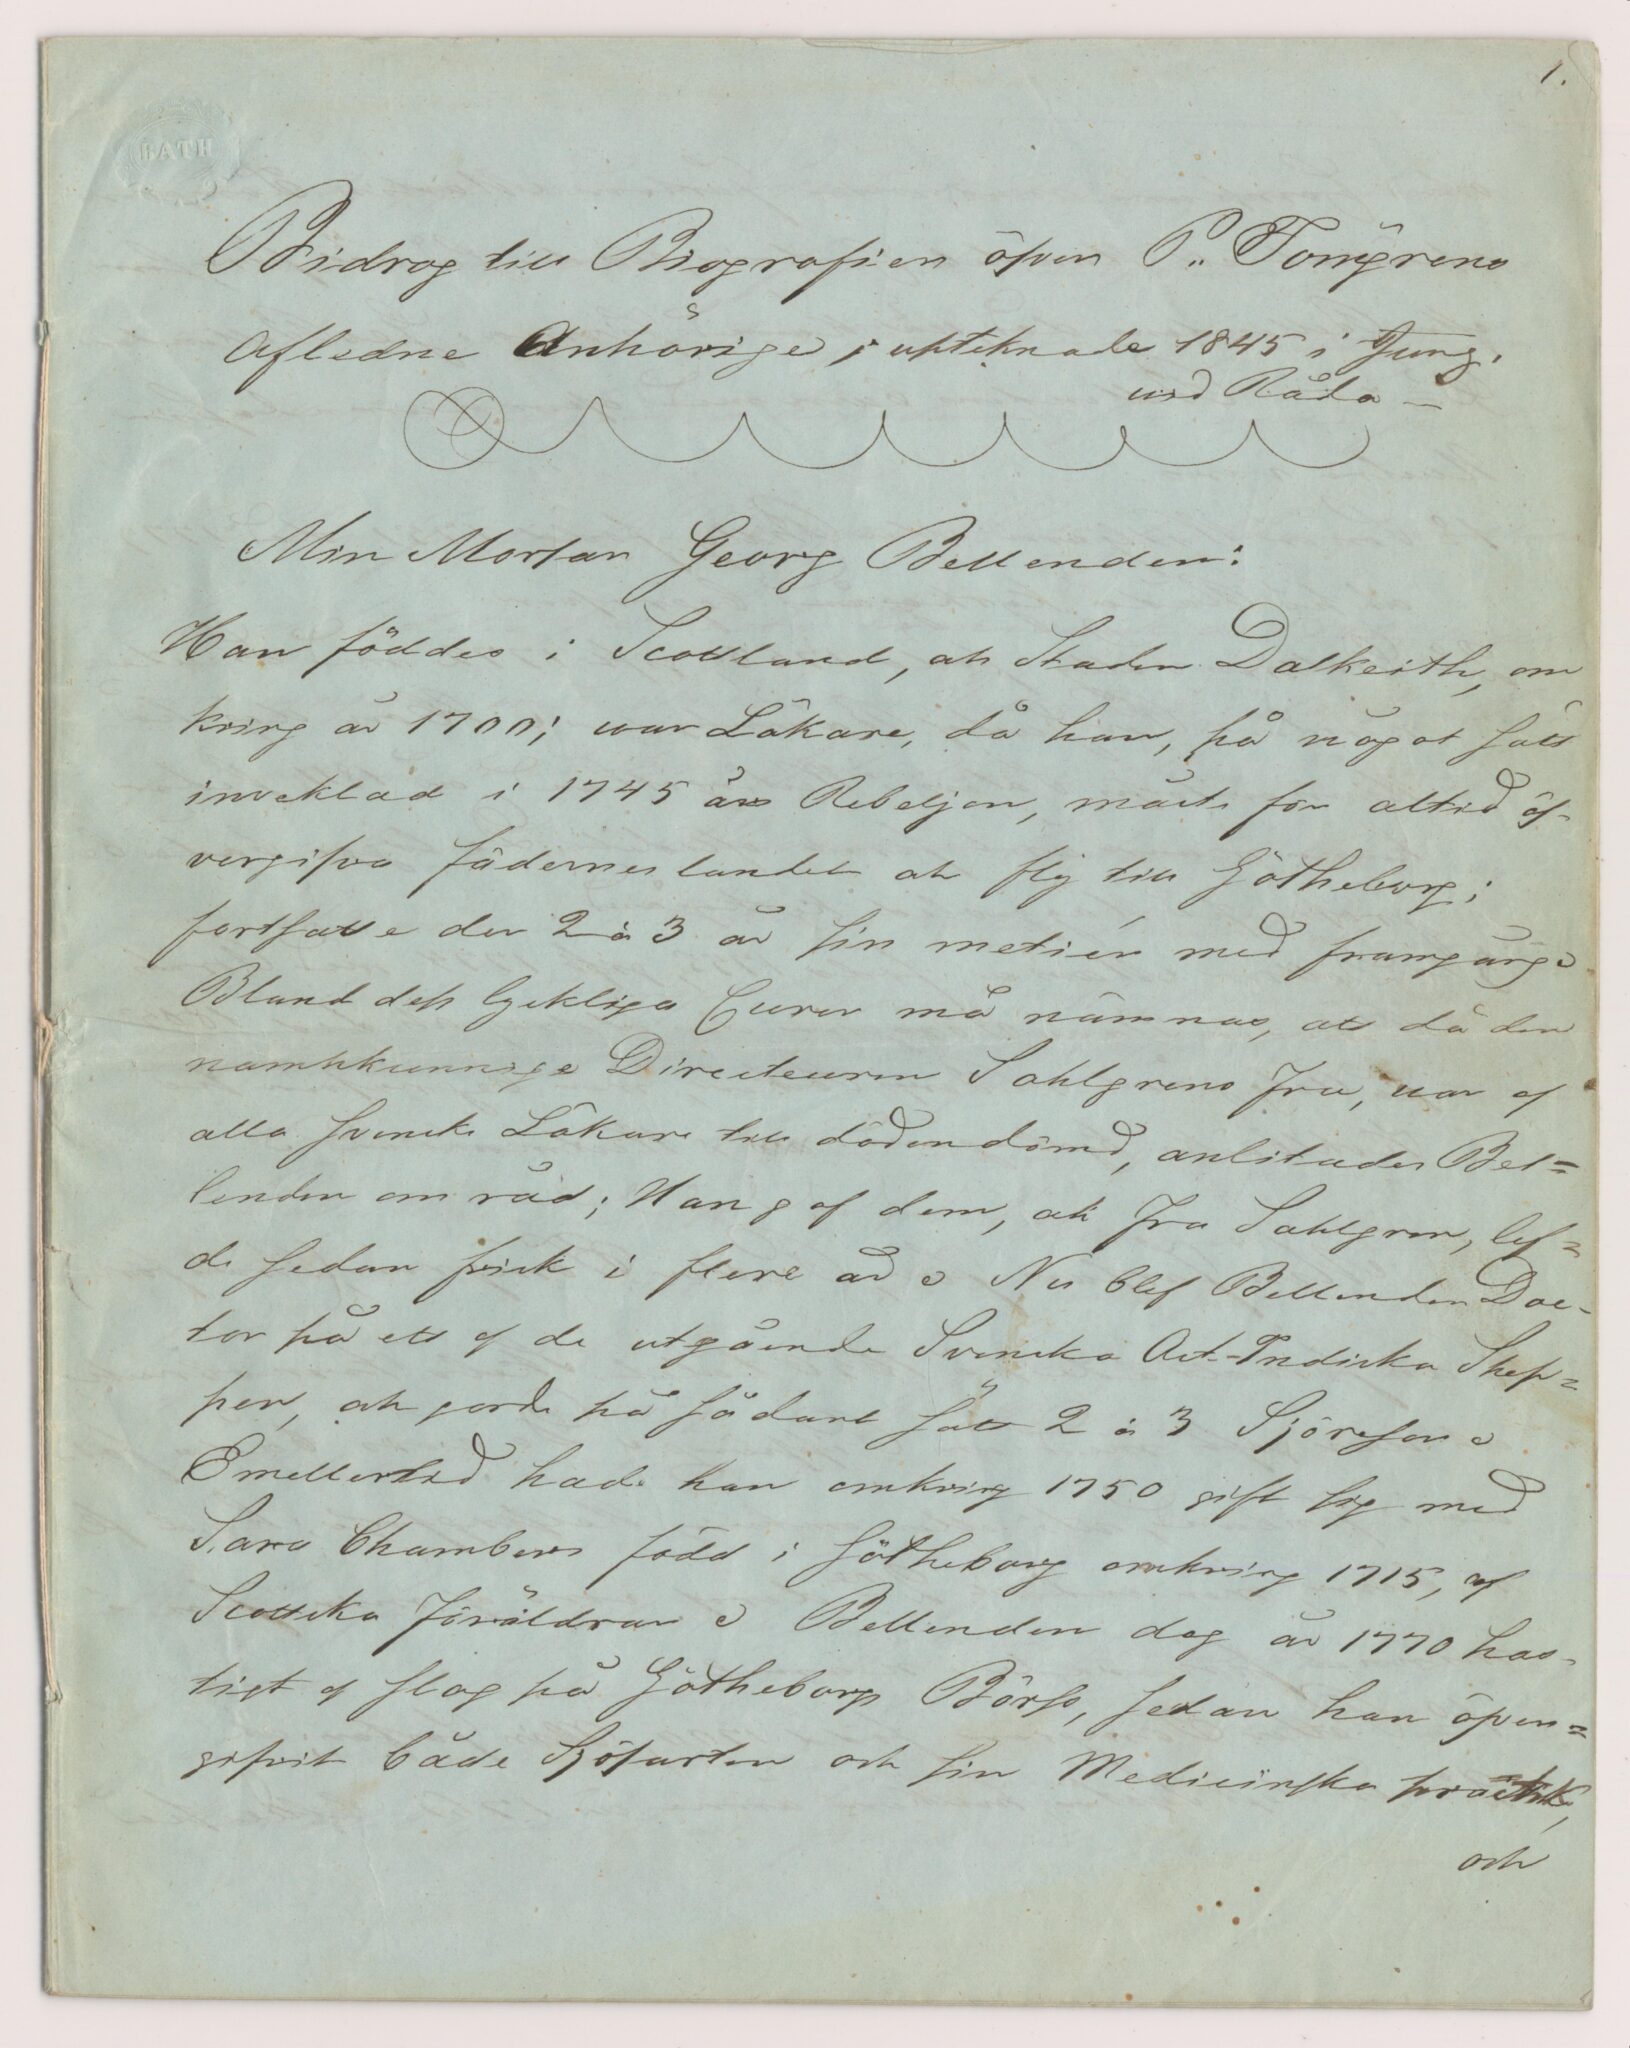 1.
BATH
Bidrag till Biografien öfver P. Tom͞grens
Afledne Anhörige, upteknade 1845 i Jung.
vid Råda –
Min Morfar Georg Bellenden:
Han föddes i Scottland, uti Staden Dalkeith, om
kring år 1700; war Läkare, då han, på något sätt
invecklad i 1745 års Rebeljon, måste för altid öf-
vergifva fäderneslandet och fly till Götheborg;
fortsatte der 2 à 3 år sin metier med framgång.
Bland dess lyckliga Curer må nämnas, att då den
namnkunnige Directeuren Sahlgrens Fru, var af
alla svenske Läkare till döden dömd, anlitades Bel=
lenden om råd; Han gaf dem, och Fru Sahlgren, lef=
de sedan frisk i flere år. Nu blef Bellenden Doc-
tor på ett af de utgående Svenska Ost-Indiska Skep=
pen, och gorde på sådant sätt 2 à 3 Sjöresor.
Emellertid hade han omkring 1750 gift sig med
Sara Chambers född i Götheborg omkring 1715, af
Scottska Föräldrar. Bellenden dog år 1770 has-
tigt af slag på Götheborgs Börss, sedan han öfver=
gifvit både Sjöfarten och sin Medicinska practik,
och